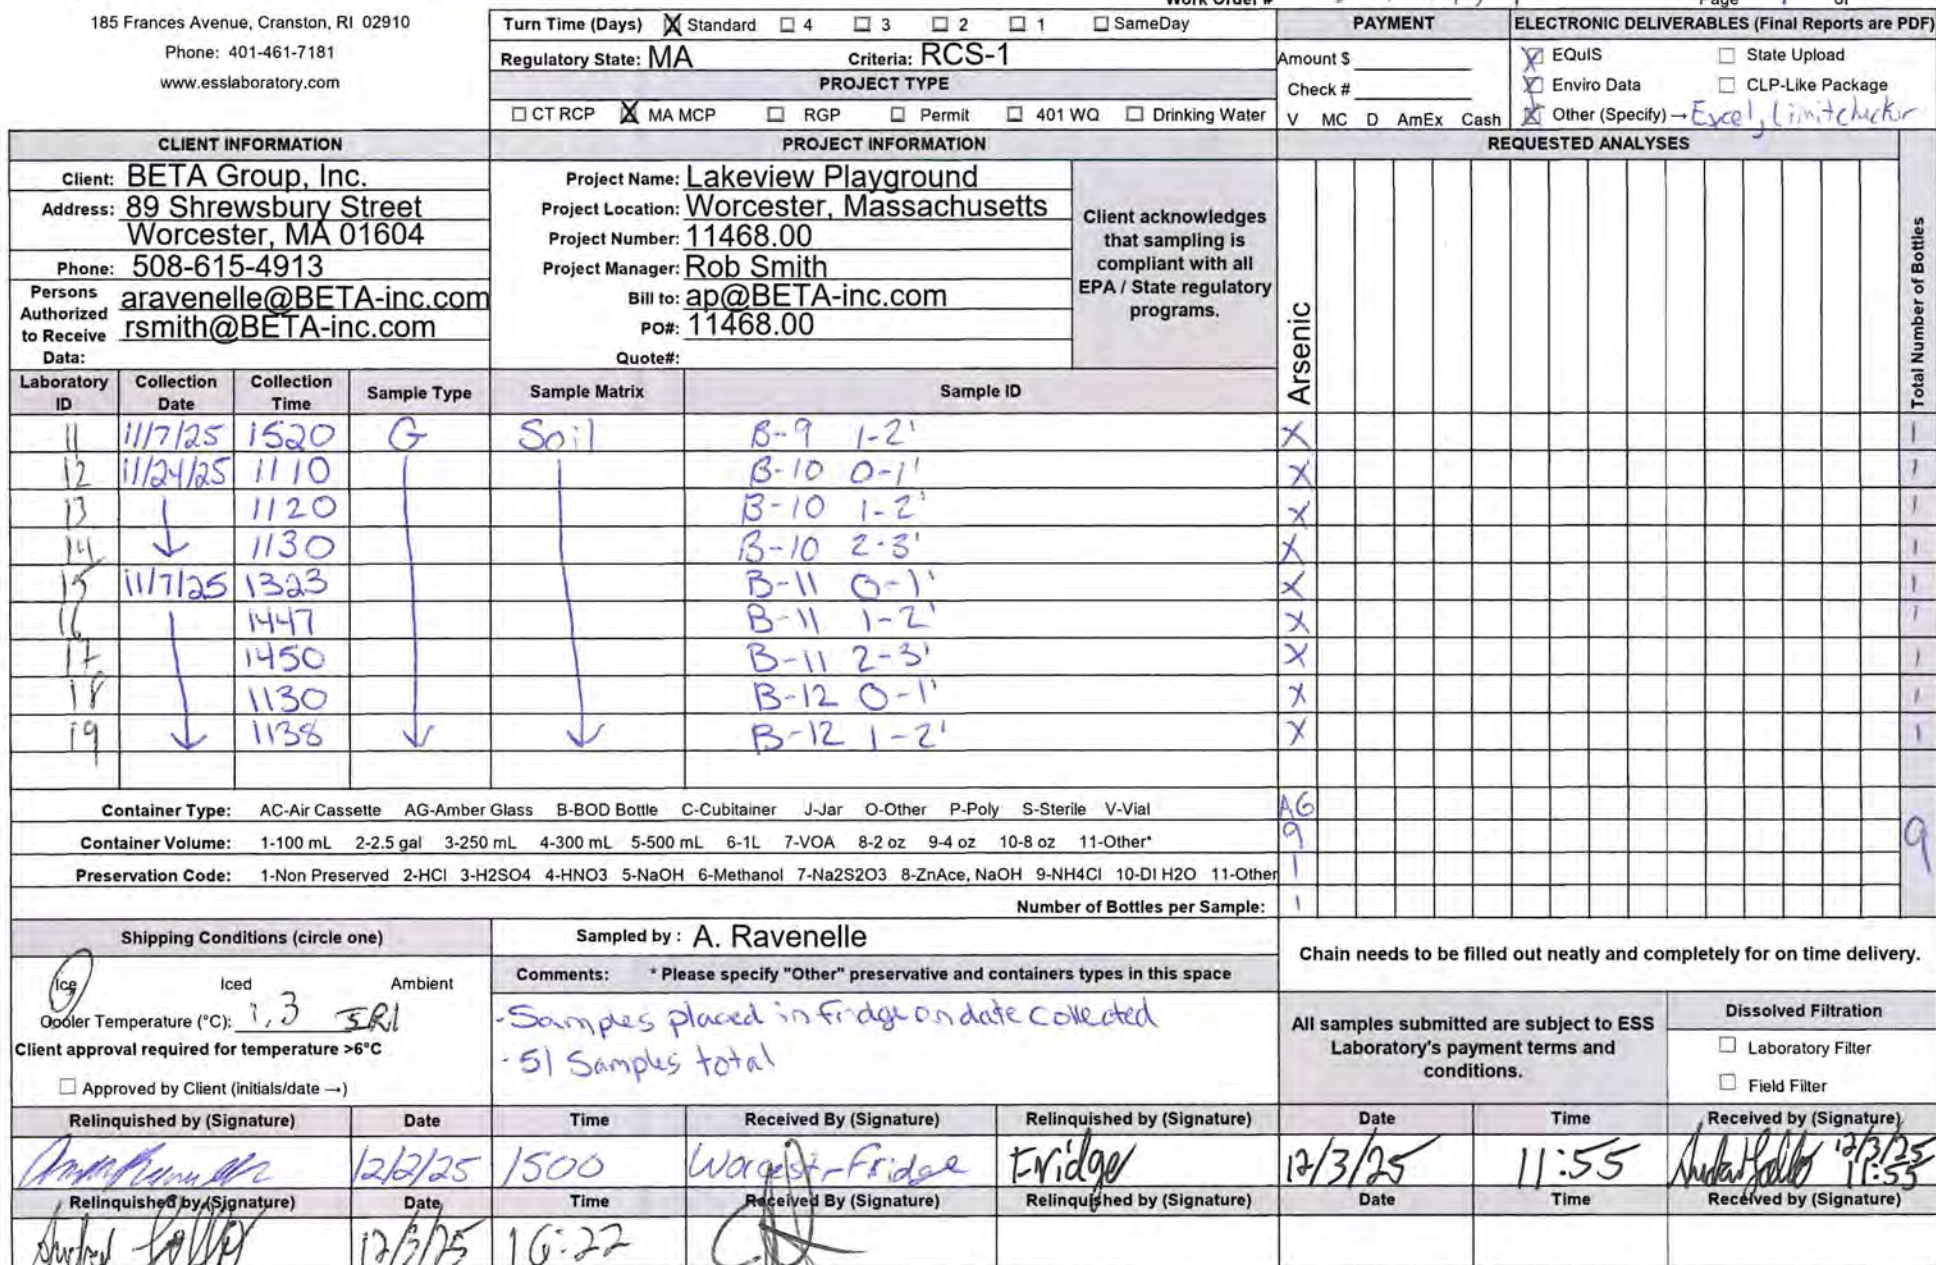 185 Frances Avenue, Cranston, RI 02910
Phone: 401-461-7181
www.esslaboratory.com
Work Order #
Page
of
Turn Time (Days) X Standard ☐ 4 ☐ 3 ☐ 2 ☐ 1 ☐ SameDay
Regulatory State: MA Criteria: RCS-1
PROJECT TYPE
☐ CT RCP X MA MCP ☐ RGP ☐ Permit ☐ 401 WQ ☐ Drinking Water
PAYMENT
Amount $
Check #
V MC D AmEx Cash
ELECTRONIC DELIVERABLES (Final Reports are PDF)
X EQuIS ☐ State Upload
X Enviro Data ☐ CLP-Like Package
X Other (Specify) → Excel, Limitcheckr
CLIENT INFORMATION
Client: BETA Group, Inc.
Address: 89 Shrewsbury Street
Worcester, MA 01604
Phone: 508-615-4913
Persons Authorized to Receive Data:
aravenelle@BETA-inc.com
rsmith@BETA-inc.com
PROJECT INFORMATION
Project Name: Lakeview Playground
Project Location: Worcester, Massachusetts
Project Number: 11468.00
Project Manager: Rob Smith
Bill to: ap@BETA-inc.com
PO#: 11468.00
Quote#:
Client acknowledges
that sampling is
compliant with all
EPA / State regulatory
programs.
REQUESTED ANALYSES
Arsenic
Total Number of Bottles
Laboratory ID Collection Date Collection Time Sample Type Sample Matrix Sample ID
11 11/7/25 1520 G Soil B-9 1-2' X 1
12 11/24/25 1110 B-10 0-1' X 1
13 1120 B-10 1-2' X 1
14 1130 B-10 2-3' X 1
15 11/7/25 1323 B-11 0-1' X 1
16 1447 B-11 1-2' X 1
17 1450 B-11 2-3' X 1
18 1130 B-12 0-1' X 1
19 1138 B-12 1-2' X 1
Container Type: AC-Air Cassette AG-Amber Glass B-BOD Bottle C-Cubitainer J-Jar O-Other P-Poly S-Sterile V-Vial AG
Container Volume: 1-100 mL 2-2.5 gal 3-250 mL 4-300 mL 5-500 mL 6-1L 7-VOA 8-2 oz 9-4 oz 10-8 oz 11-Other* 9 9
Preservation Code: 1-Non Preserved 2-HCl 3-H2SO4 4-HNO3 5-NaOH 6-Methanol 7-Na2S2O3 8-ZnAce, NaOH 9-NH4Cl 10-DI H2O 11-Other 1
Number of Bottles per Sample: 1
Shipping Conditions (circle one)
Ice Iced Ambient
Cooler Temperature (°C): 1.3 IR1
Client approval required for temperature >6°C
☐ Approved by Client (initials/date →)
Sampled by : A. Ravenelle
Comments: * Please specify "Other" preservative and containers types in this space
-Samples placed in fridge on date collected
-51 Samples total
Chain needs to be filled out neatly and completely for on time delivery.
All samples submitted are subject to ESS
Laboratory's payment terms and
conditions.
Dissolved Filtration
☐ Laboratory Filter
☐ Field Filter
Relinquished by (Signature) Date Time Received By (Signature) Relinquished by (Signature) Date Time Received by (Signature)
12/2/25 1500 Fridge Fridge 12/3/25 11:55 12/3/25 11:55
Relinquished by (Signature) Date Time Received By (Signature) Relinquished by (Signature) Date Time Received by (Signature)
12/3/25 16:22